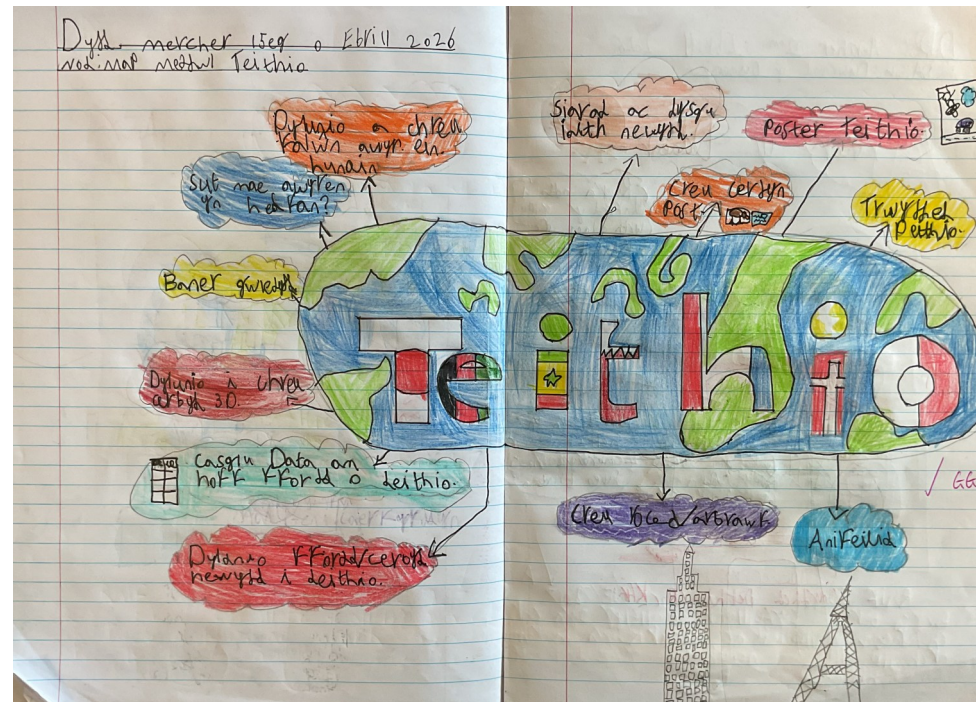 Dydd mercher 15eg o Ebrill 2026
nod: map meddwl Teithio
Dylunio a chreu
balwn awyr ein
hunain
Sut mae awyren
yn hedfan?
Baner gwledydd
Dylunio i chreu
arbyd 3D.
Casglu Data an
hoff ffordd o deithio.
Dylunio ffordd/cerbyd
newydd i deithio.
siarad ac dysgu
iaith newydd.
Poster teithio.
Creu cerdyn
Post.
Teithio
Anifeiliaid